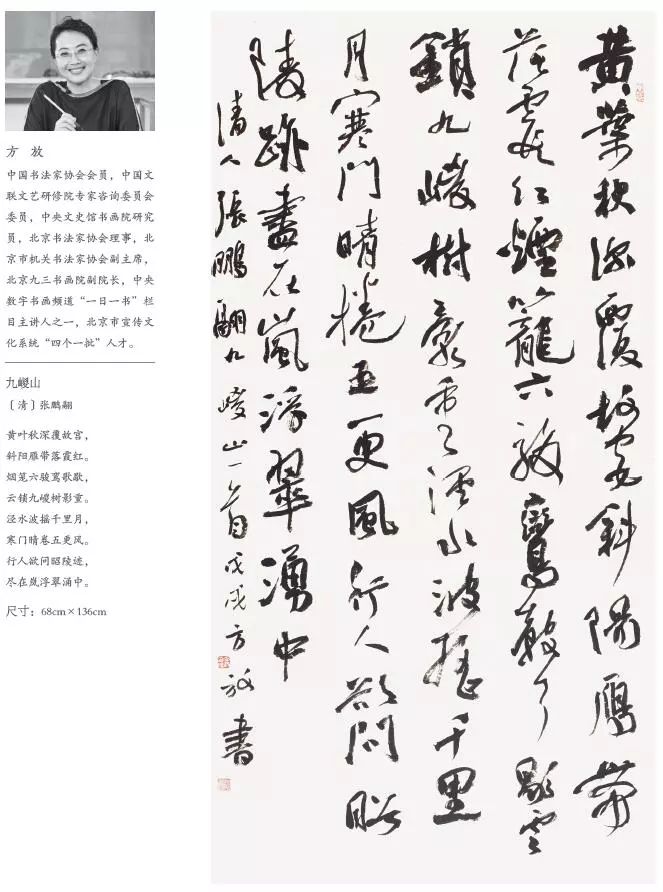 方 放
中国书法家协会会员，中国文
联文艺研修院专家咨询委员会
委员，中央文史馆书画院研究
员，北京书法家协会理事，北
京市机关书法家协会副主席，
北京九三书画院副院长，中央
数字书画频道“一日一书”栏
目主讲人之一，北京市宣传文
化系统“四个一批”人才。
九嵕山
〔清〕张鹏翮
黄叶秋深覆故宫，
斜阳雁带落霞红。
烟笼六骏鸾歌歇，
云锁九嵕树影重。
泾水波摇千里月，
寒门晴卷五更风。
行人欲问昭陵迹，
尽在岚浮翠涌中。
尺寸：68cm×136cm
黄葉秋深覆故宫斜陽雁帶
落霞红煙籠六駿鸞歌歇雲
鎖九嵕樹影重涇水波摇千里
月寒門晴捲五更風行人欲問昭
陵跡盡在嵐浮翠湧中
清人張鵬翮九嵕山一首戊戌方放書